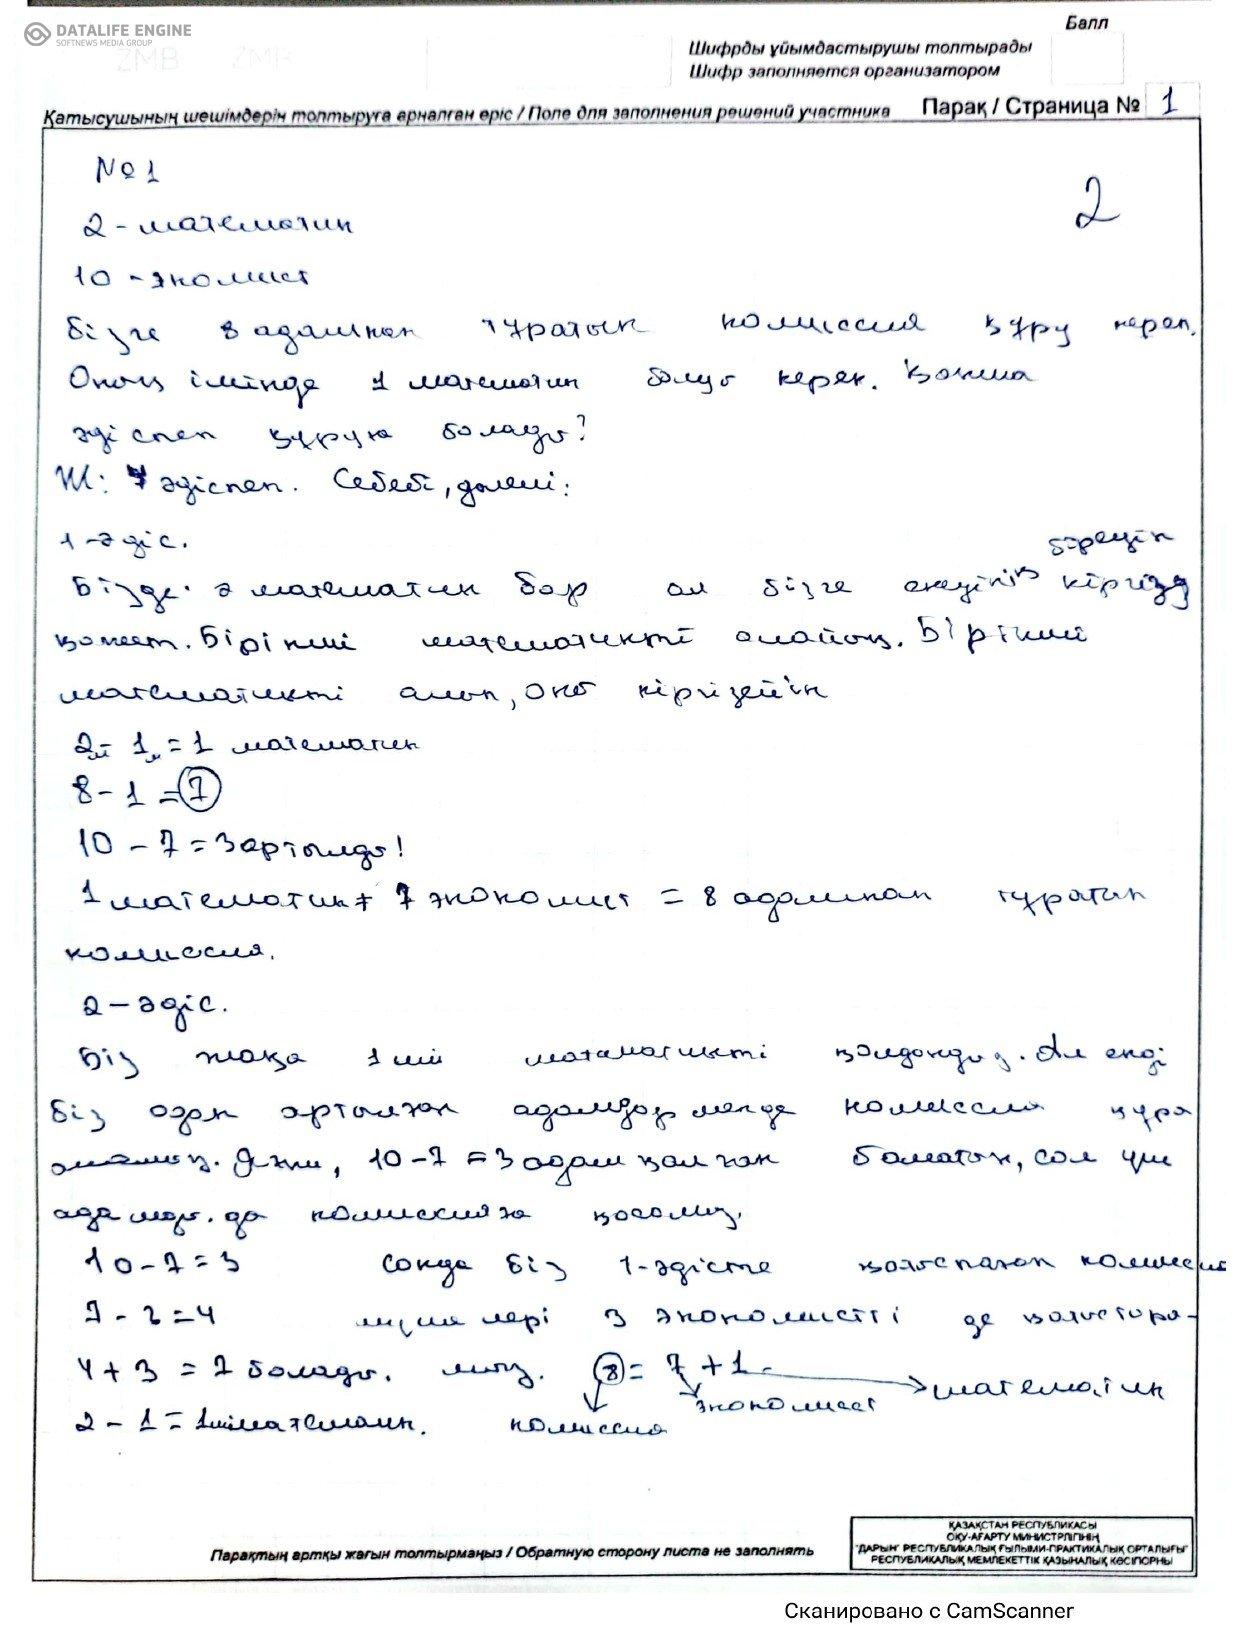 DATALIFE ENGINE
SOFTNEWS MEDIA GROUP
ZMB ZMB
Балл
Шифрды ұйымдастырушы толтырады
Шифр заполняется организатором
Қатысушының шешімдерін толтыруға арналған өріс / Поле для заполнения решений участника Парақ / Страница № 1
№1
2
2 - математик
10 - экомист
бізге 8 адамнан тұратын комиссия құру керек.
Оның ішінде 1 математик болуы керек. Қанша
әдіспен құруға болады?
Ж: 7 әдіспен. Себебі, дәлелі:
1-әдіс.
біреуін
Бізде 2 математик бар ал бізге екеуінің кіргізу
қажет. Бірінші математикті алайық. Бірінші
математикті алып, оны кіргізейік
2м - 1м = 1 математик
8 - 1 = 7
10 - 7 = 3 артылды!
1 математик + 7 экономист = 8 адамнан тұратын
комиссия.
2 - әдіс.
Біз жаңа 1 ші математикті қолдандық. Ал енді
біз артылған адамдар комиссия құра
аламыз. Яғни, 10 - 7 = 3 адам қалған болатын, сол үш
адамды да комиссияға қосамыз.
10 - 7 = 3 сонда біз 1-әдісте қатыспаған комиссия
7 - 3 = 4 мүшелері 3 экономистті де қатыстыра-
4 + 3 = 7 болады. мыз. 8 = 7 + 1
математик
экономист
2 - 1 = 1 математик. комиссия
ҚАЗАҚСТАН РЕСПУБЛИКАСЫ
ОҚУ-АҒАРТУ МИНИСТРЛІГІНІҢ
"ДАРЫН" РЕСПУБЛИКАЛЫҚ ҒЫЛЫМИ-ПРАКТИКАЛЫҚ ОРТАЛЫҒЫ"
РЕСПУБЛИКАЛЫҚ МЕМЛЕКЕТТІК ҚАЗЫНАЛЫҚ КӘСІПОРНЫ
Парақтың артқы жағын толтырмаңыз / Обратную сторону листа не заполнять
Сканировано с CamScanner